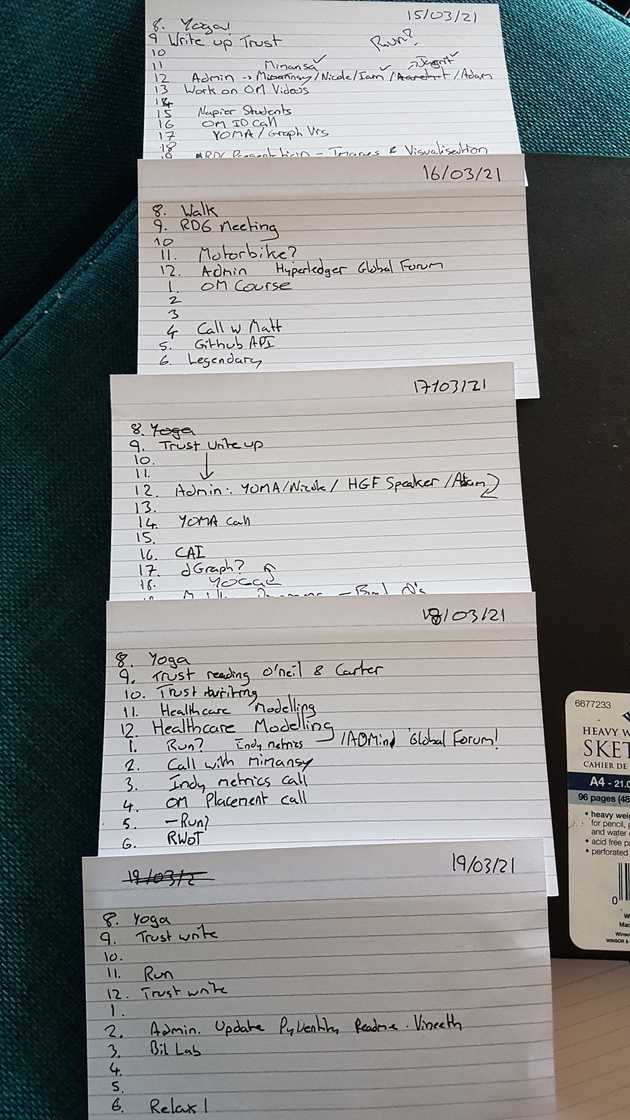 15/03/21
8. Yoga
9 Write up Trust
Run?
10
11 Mimansa
12 Admin → /Nicole/Iain/ /Adam
13 Work on OM Videos
14
15 Napier Students
16 OM ID Call
17 YOMA / Graph Vis
18
19 Presentation - Images & Visualisation
16/03/21
8. Walk
9. RDG Meeting
10
11. Motorbike?
12. Admin Hyperledger Global Forum
1. OM Course
2
3
4 Call w Matt
5. Github API
6. Legendary
17/03/21
8. Yoga
9. Trust write up
10.
11.
12. Admin: YOMA/Nicole/ HGF Speaker /Adam
13.
14. YOMA Call
15.
16. CAI
17. dGraph?
18. YOGA
18/03/21
8. Yoga
9. Trust reading O'neil & Carter
10. Trust writing
11. Healthcare Modelling
12. Healthcare Modelling
1. Run? Indy metrics /ADMin Global Forum!
2. Call with Mimansy
3. Indy metrics call
4. OM Placement call
5. - Run?
6. RWOT
19/03/2
19/03/21
8. Yoga
9. Trust write
10.
11. Run
12. Trust write
1.
2. Admin. Update PyDentity Readme. Vineeth
3. Bil Lab
4.
5.
6. Relax!
6677233
HEAVY W
SKET
CAHIER DE
A4 - 21.0
96 pages (48
• heavy weig
for pencil, p
and water
• acid free pa
• perforated
0